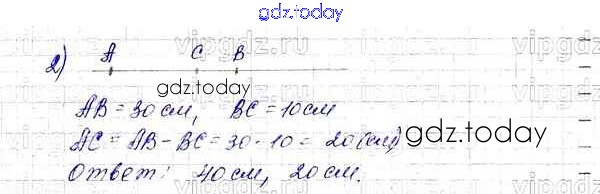 gdz.today
vipgdz.ru vipgdz.ru
2) A C B
gdz.today
AB = 30 см, BC = 10 см
AC = AB - BC = 30 - 10 = 20 (см)
gdz.today
Ответ: 40 см, 20 см.
vipgdz.ru vipgdz.ru